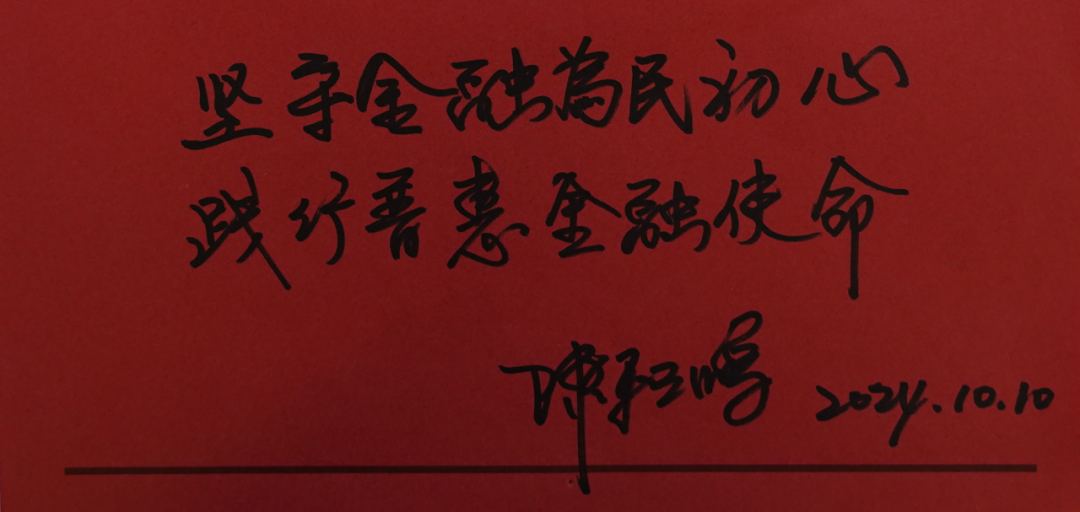 坚守金融為民初心
践行普惠金融使命
陈 鸣 2024.10.10